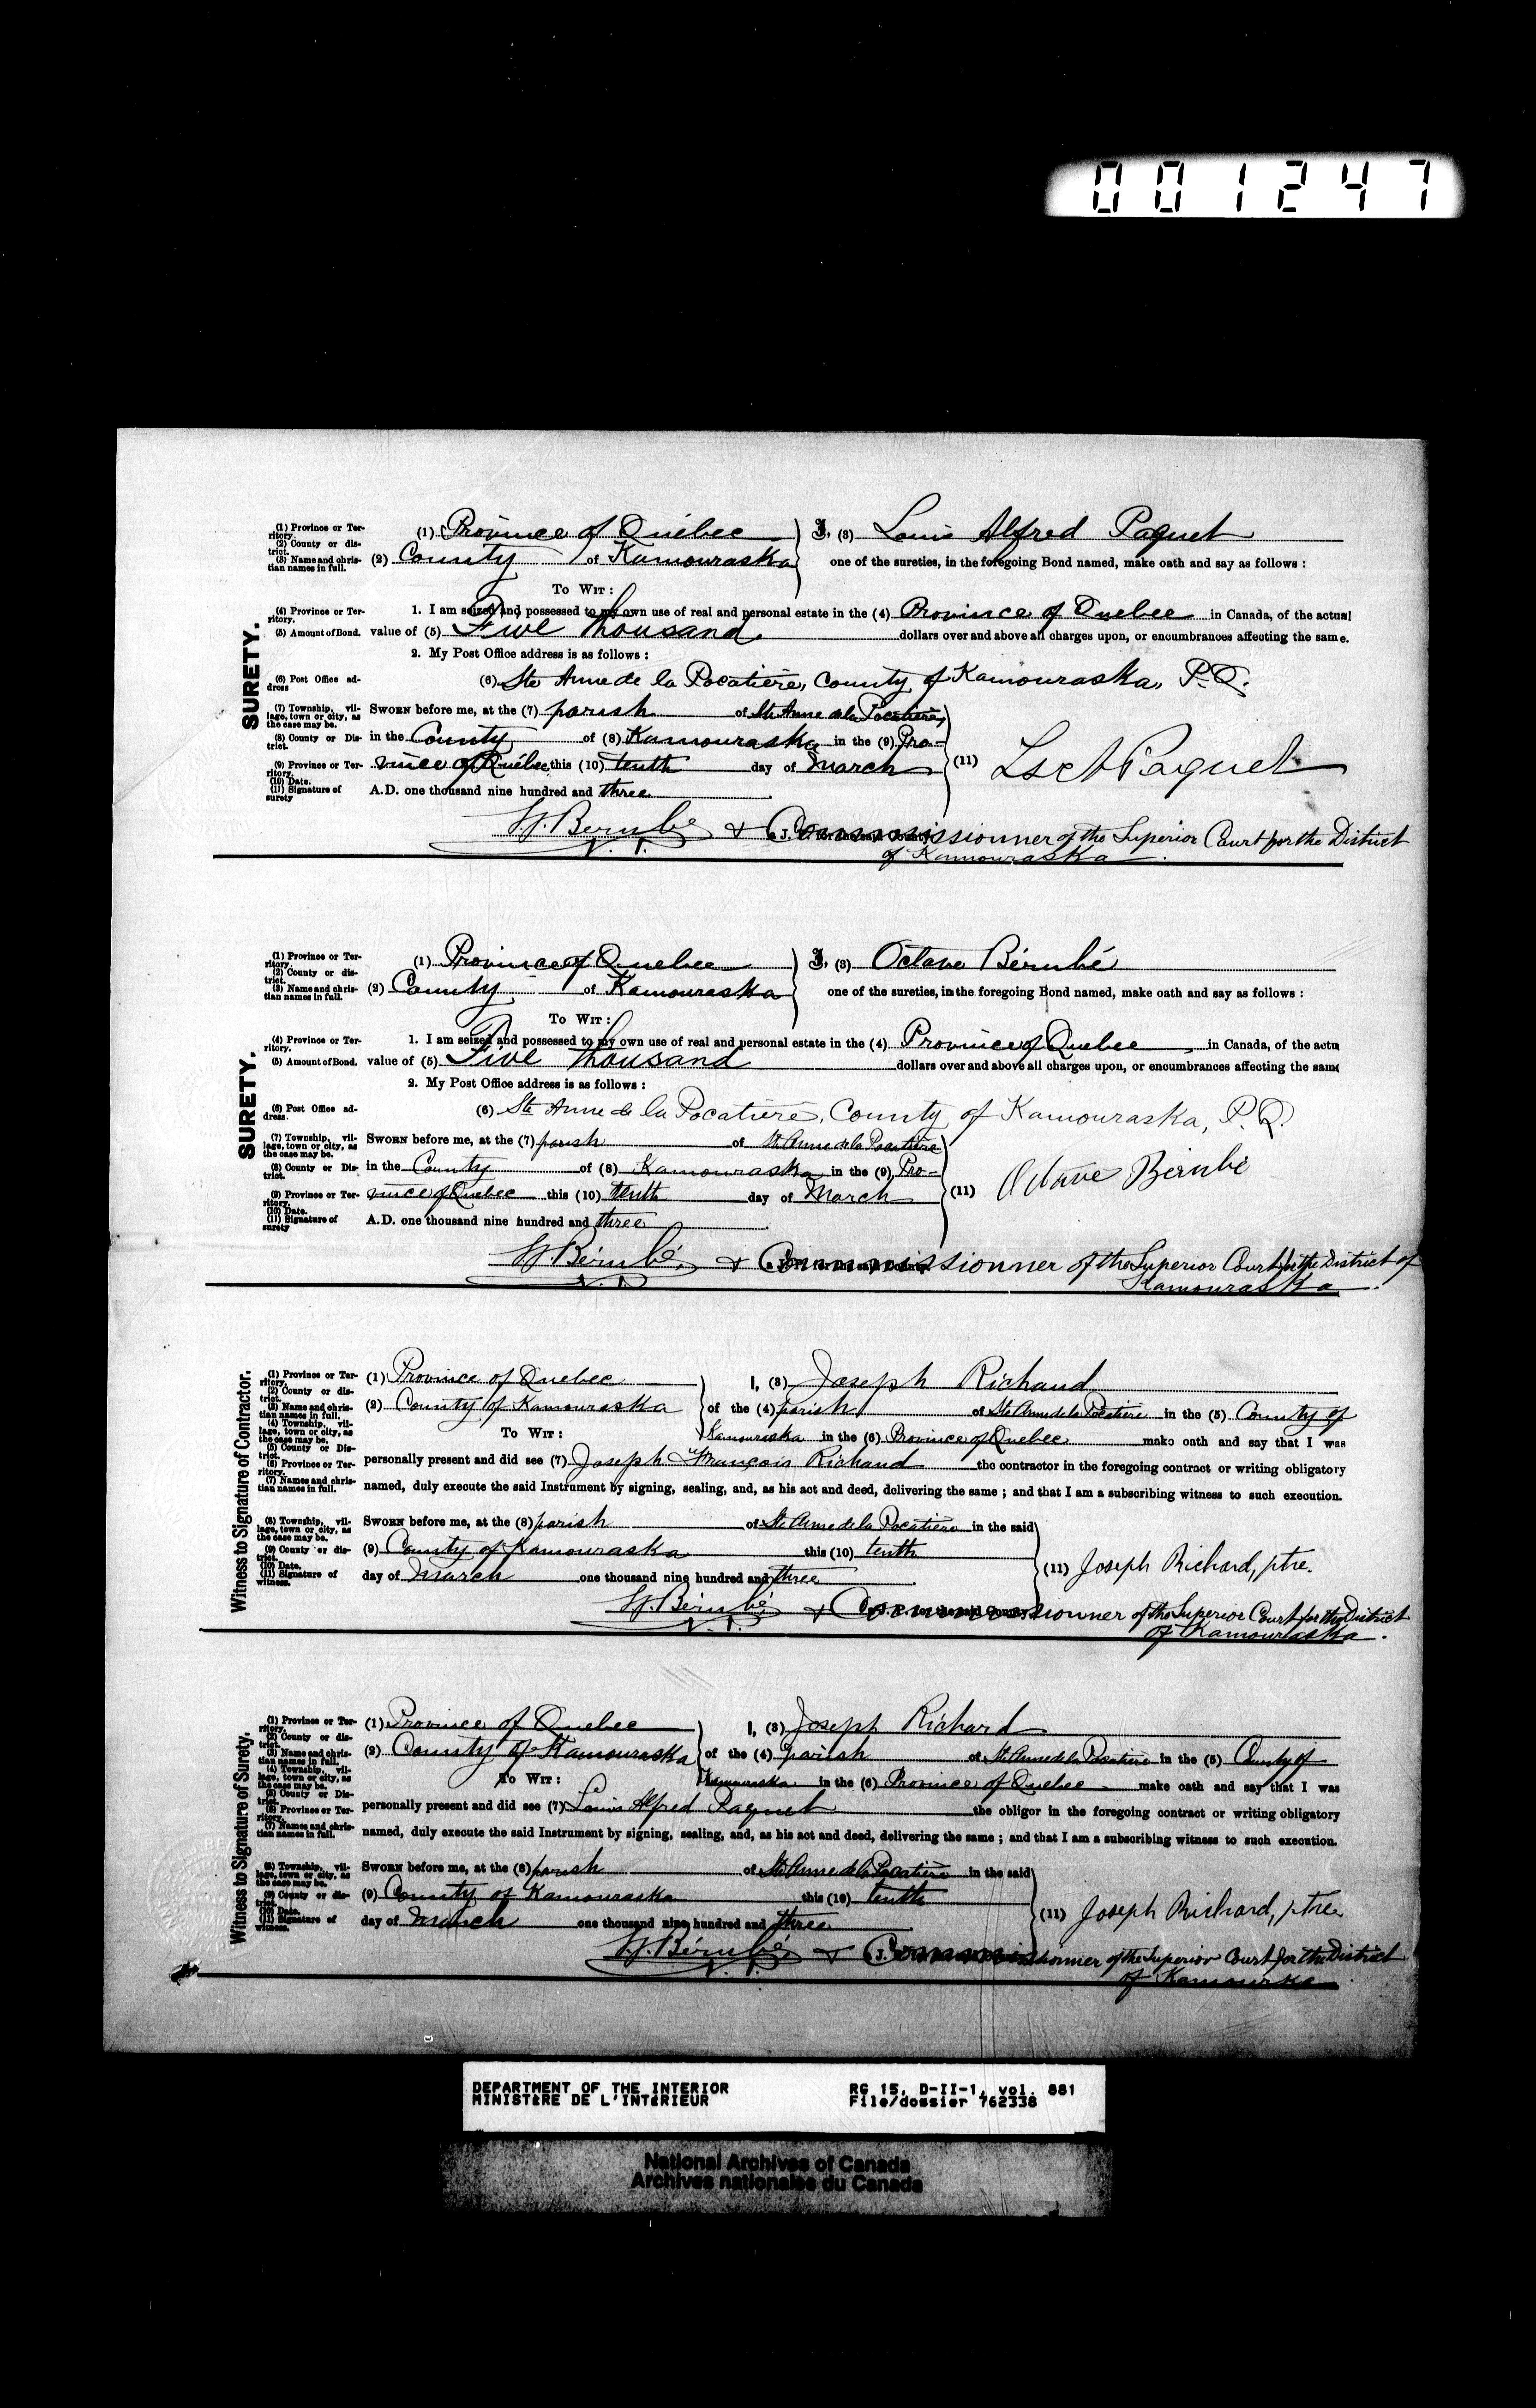 001247
SURETY.
(1) Province or Territory.
(2) County or district.
(3) Name and christian names in full.
(1) Province of Québec
I, (3) Louis Alfred Paquet
(2) County of Kamouraska
one of the sureties, in the foregoing Bond named, make oath and say as follows :
TO WIT :
(4) Province or Territory.
1. I am seized and possessed to my own use of real and personal estate in the (4) Province of Quebec in Canada, of the actual
(5) Amount of Bond.
value of (5) Five thousand dollars over and above all charges upon, or encumbrances affecting the same.
2. My Post Office address is as follows :
(6) Post Office address
(6) Ste Anne de la Pocatière, County of Kamouraska, P.Q.
(7) Township, village, town or city, as the case may be.
SWORN before me, at the (7) parish of Ste Anne de la Pocatière,
(8) County or District.
in the County of (8) Kamouraska in the (9) Pro-
(9) Province or Territory.
vince of Québec, this (10) tenth day of March
(11) Ls A Paquet
(10) Date.
(11) Signature of surety
A.D. one thousand nine hundred and three
Bérubé N.P. & Commissionner of the Superior Court for the District
of Kamouraska.
SURETY.
(1) Province or Territory.
(2) County or district.
(3) Name and christian names in full.
(1) Province of Quebec
I, (3) Octave Bérubé
(2) County of Kamouraska
one of the sureties, in the foregoing Bond named, make oath and say as follows :
TO WIT :
(4) Province or Territory.
1. I am seized and possessed to my own use of real and personal estate in the (4) Province of Quebec, in Canada, of the actu
(5) Amount of Bond.
value of (5) Five thousand dollars over and above all charges upon, or encumbrances affecting the same
2. My Post Office address is as follows :
(6) Post Office address.
(6) Ste Anne de la Pocatière, County of Kamouraska, P.Q.
(7) Township, village, town or city, as the case may be.
SWORN before me, at the (7) parish of Ste Anne de la Pocatière
(8) County or District.
in the County of (8) Kamouraska in the (9) Pro-
(9) Province or Territory.
vince of Quebec this (10) tenth day of March
(11) Octave Bérubé
(10) Date.
(11) Signature of surety
A.D. one thousand nine hundred and three
Bérubé, N.P. & Commissionner of the Superior Court for the District of
Kamouraska.
Witness to Signature of Contractor.
(1) Province or Territory.
(2) County or district.
(3) Name and christian names in full.
(4) Township, village, town or city, as the case may be.
(5) County or District.
(6) Province or Territory.
(7) Names and christian names in full.
(1) Province of Quebec
I, (3) Joseph Richard
(2) County of Kamouraska
of the (4) parish of Ste Anne de la Pocatière in the (5) County of
TO WIT :
Kamouraska in the (6) Province of Quebec make oath and say that I was
personally present and did see (7) Joseph François Richard the contractor in the foregoing contract or writing obligatory
named, duly execute the said Instrument by signing, sealing, and, as his act and deed, delivering the same ; and that I am a subscribing witness to such execution.
(8) Township, village, town or city, as the case may be.
(9) County or district.
(10) Date.
(11) Signature of witness.
SWORN before me, at the (8) parish of Ste Anne de la Pocatière in the said
(9) County of Kamouraska this (10) tenth
day of March one thousand nine hundred and three
(11) Joseph Richard, ptre.
Bérubé, N.P. & Commissionner of the Superior Court for the District
of Kamouraska.
Witness to Signature of Surety.
(1) Province or Territory.
(2) County or district.
(3) Name and christian names in full.
(4) Township, village, town or city, as the case may be.
(5) County or District.
(6) Province or Territory.
(7) Names and christian names in full.
(1) Province of Quebec
I, (3) Joseph Richard
(2) County of Kamouraska
of the (4) parish of Ste Anne de la Pocatière in the (5) County of
TO WIT :
Kamouraska in the (6) Province of Quebec make oath and say that I was
personally present and did see (7) Louis Alfred Paquet the obligor in the foregoing contract or writing obligatory
named, duly execute the said Instrument by signing, sealing, and, as his act and deed, delivering the same ; and that I am a subscribing witness to such execution.
(8) Township, village, town or city, as the case may be.
(9) County or district.
(10) Date.
(11) Signature of witness.
SWORN before me, at the (8) parish of Ste Anne de la Pocatière in the said
(9) County of Kamouraska this (10) tenth
day of March one thousand nine hundred and three
(11) Joseph Richard, ptre.
Bérubé, N.P. & Commissionner of the Superior Court for the District
of Kamourska
DEPARTMENT OF THE INTERIOR RG 15, D-II-1, vol. 881
MINISTÈRE DE L'INTÉRIEUR File/dossier 762338
National Archives of Canada
Archives nationales du Canada